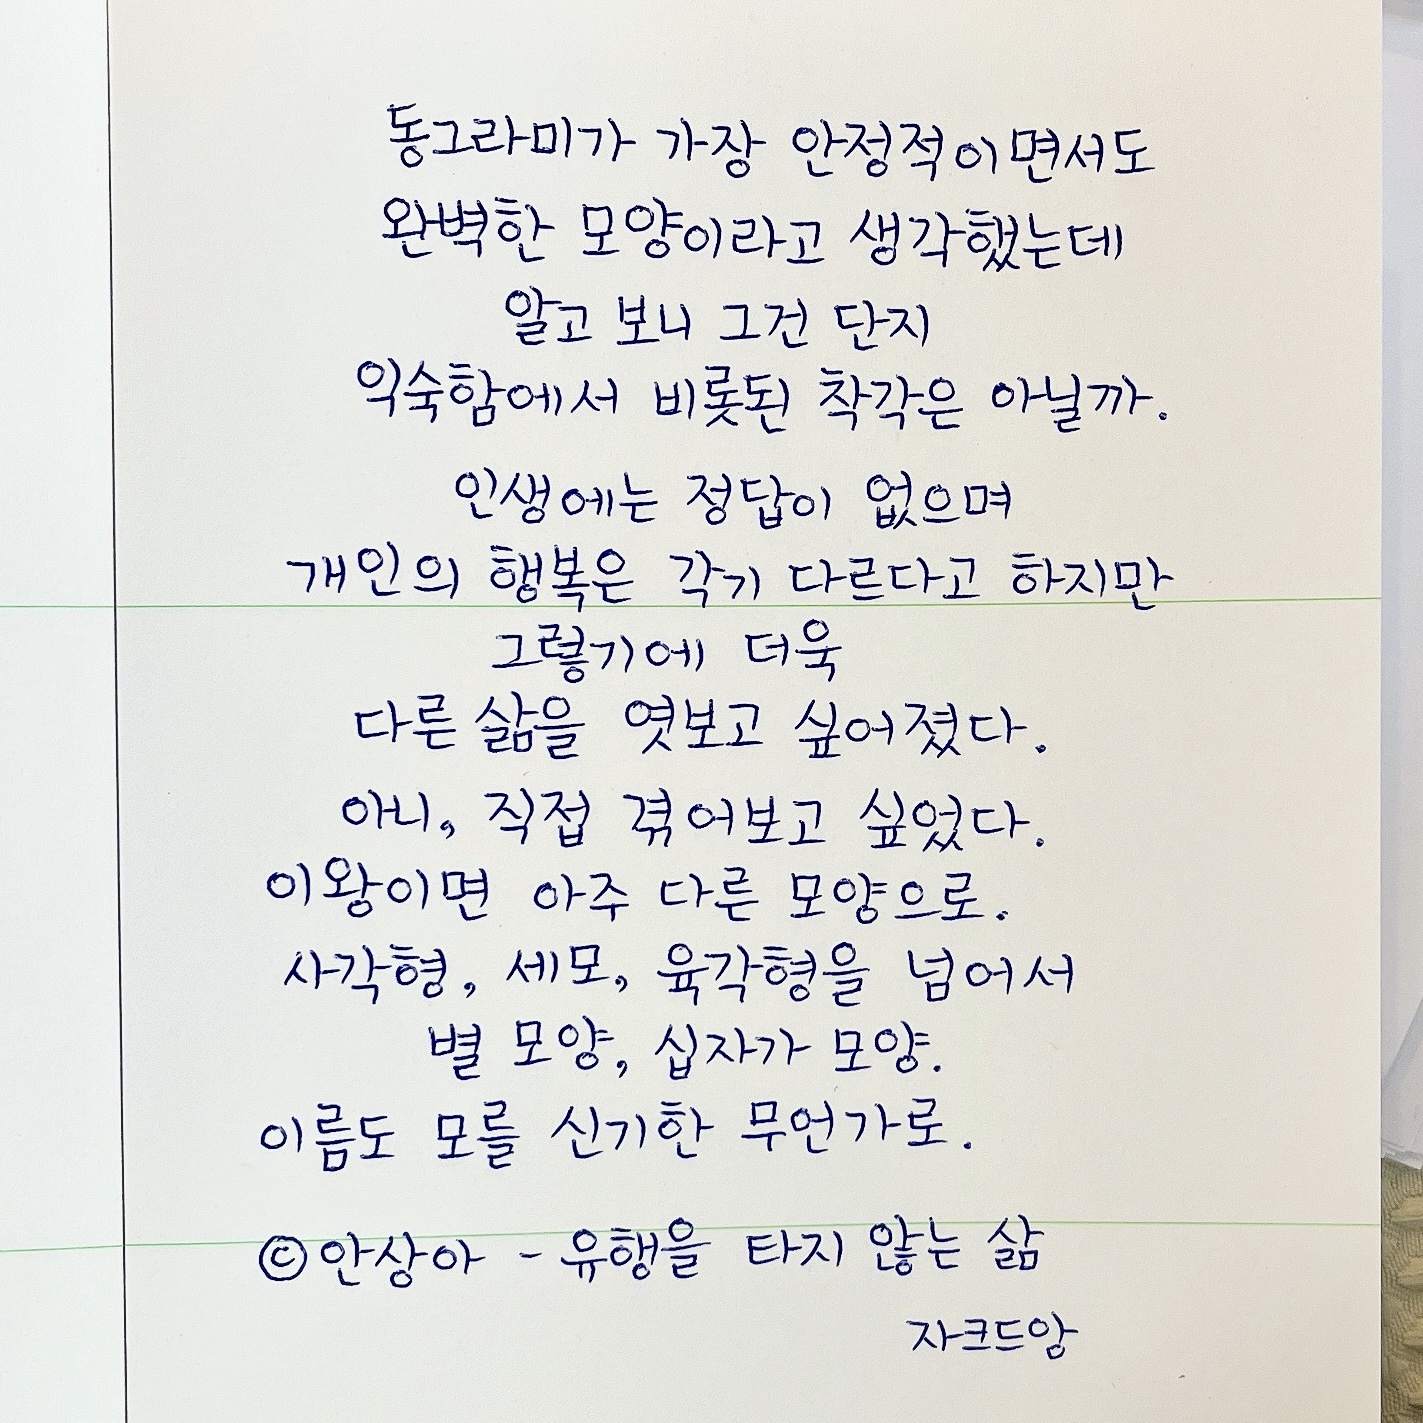 동그라미가 가장 안정적이면서도
완벽한 모양이라고 생각했는데
알고 보니 그건 단지
익숙함에서 비롯된 착각은 아닐까.
인생에는 정답이 없으며
개인의 행복은 각기 다르다고 하지만
그렇기에 더욱
다른 삶을 엿보고 싶어졌다.
아니, 직접 겪어보고 싶었다.
이왕이면 아주 다른 모양으로.
사각형, 세모, 육각형을 넘어서
별 모양, 십자가 모양.
이름도 모를 신기한 무언가로.
©안상아 - 유행을 타지 않는 삶
자크드앙